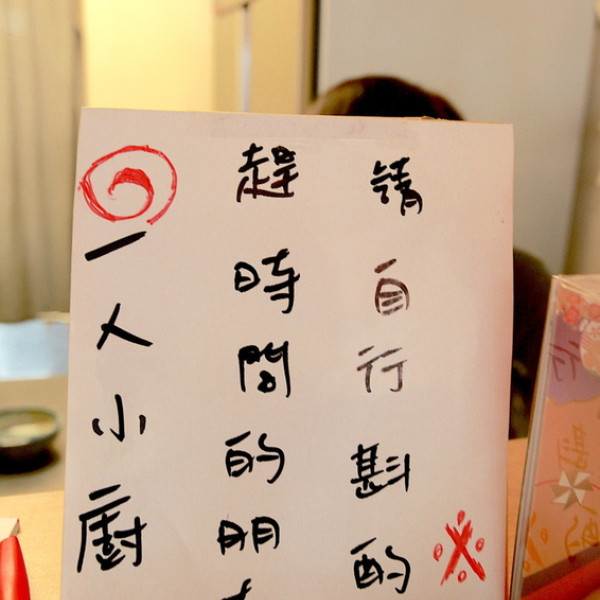 ◎一人小廚
趕時間的朋
請自行斟酌※